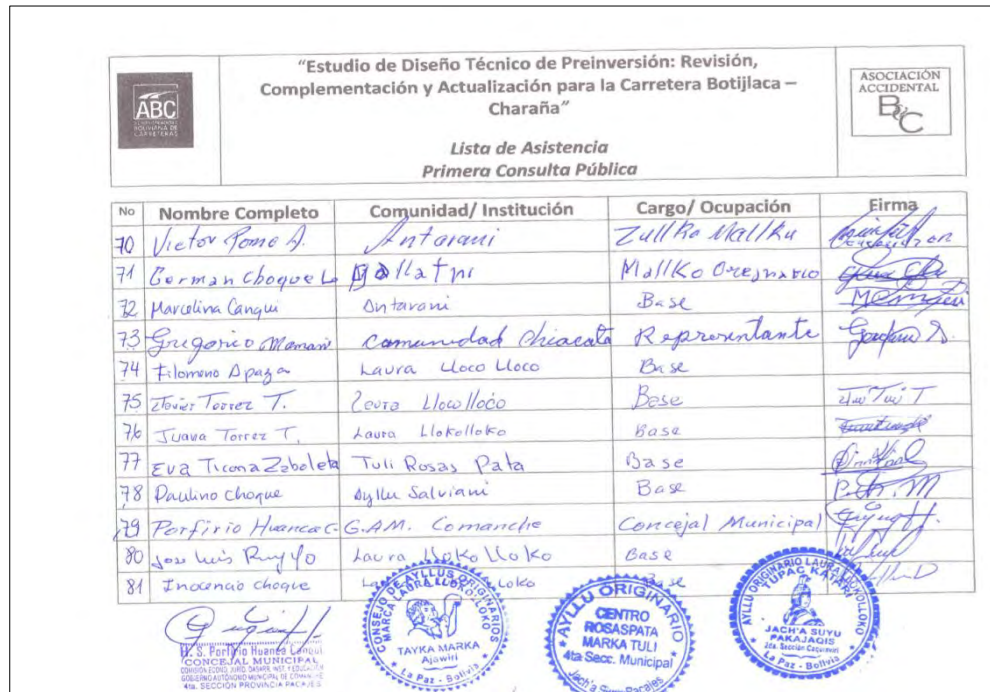 "Estudio de Diseño Técnico de Preinversión: Revisión,
Complementación y Actualización para la Carretera Botijlaca –
Charaña"
Lista de Asistencia
Primera Consulta Pública
ABC
ADMINISTRADORA
BOLIVIANA DE
CARRETERAS
ASOCIACIÓN
ACCIDENTAL
B&C
No Nombre Completo Comunidad/ Institución Cargo/ Ocupación Firma
70 Victor Poma A. Antarani Zullka Mallku
71 German Choque L Mallko Oreginario
72 Marcelina Canqui Antarani Base
73 Gregorio Mamani Comunidad Chiacata Representante
74 Filomeno Apaza Laura Lloco Lloco Base
75 Javier Torrez T. Leura Llocolloco Base
76 Juana Torrez T. Laura Llokolloko Base
77 Eva Ticona Zaboleta Tuli Rosas Pata Base
78 Paulino choque Ayllu Salviani Base
79 Porfirio Huanca C. G.A.M. Comanche Concejal Municipal
80 Jose Luis Laura Lloko Lloko Base
81 Inocencio choque Loko Base
H. S. Porfirio Huanca Canqui
CONCEJAL MUNICIPAL
GOBIERNO AUTÓNOMO MUNICIPAL DE COMANCHE
4ta. SECCIÓN PROVINCIA PACAJES
CONSEJO DE AYLLUS ORIGINARIOS
MARCA LAURA LLOKO LLOKO
TAYKA MARKA
Ajawiri
La Paz - Bolivia
AYLLU ORIGINARIO
CENTRO
ROSASPATA
MARKA TULI
4ta Secc. Municipal
Jach'a Suyu Pacajes
AYLLU ORIGINARIO LAURA LLOKOLLOKO
TUPAC KATARI
JACH'A SUYU
PAKAJAQIS
2da. Sección Caquiaviri
La Paz - Bolivia